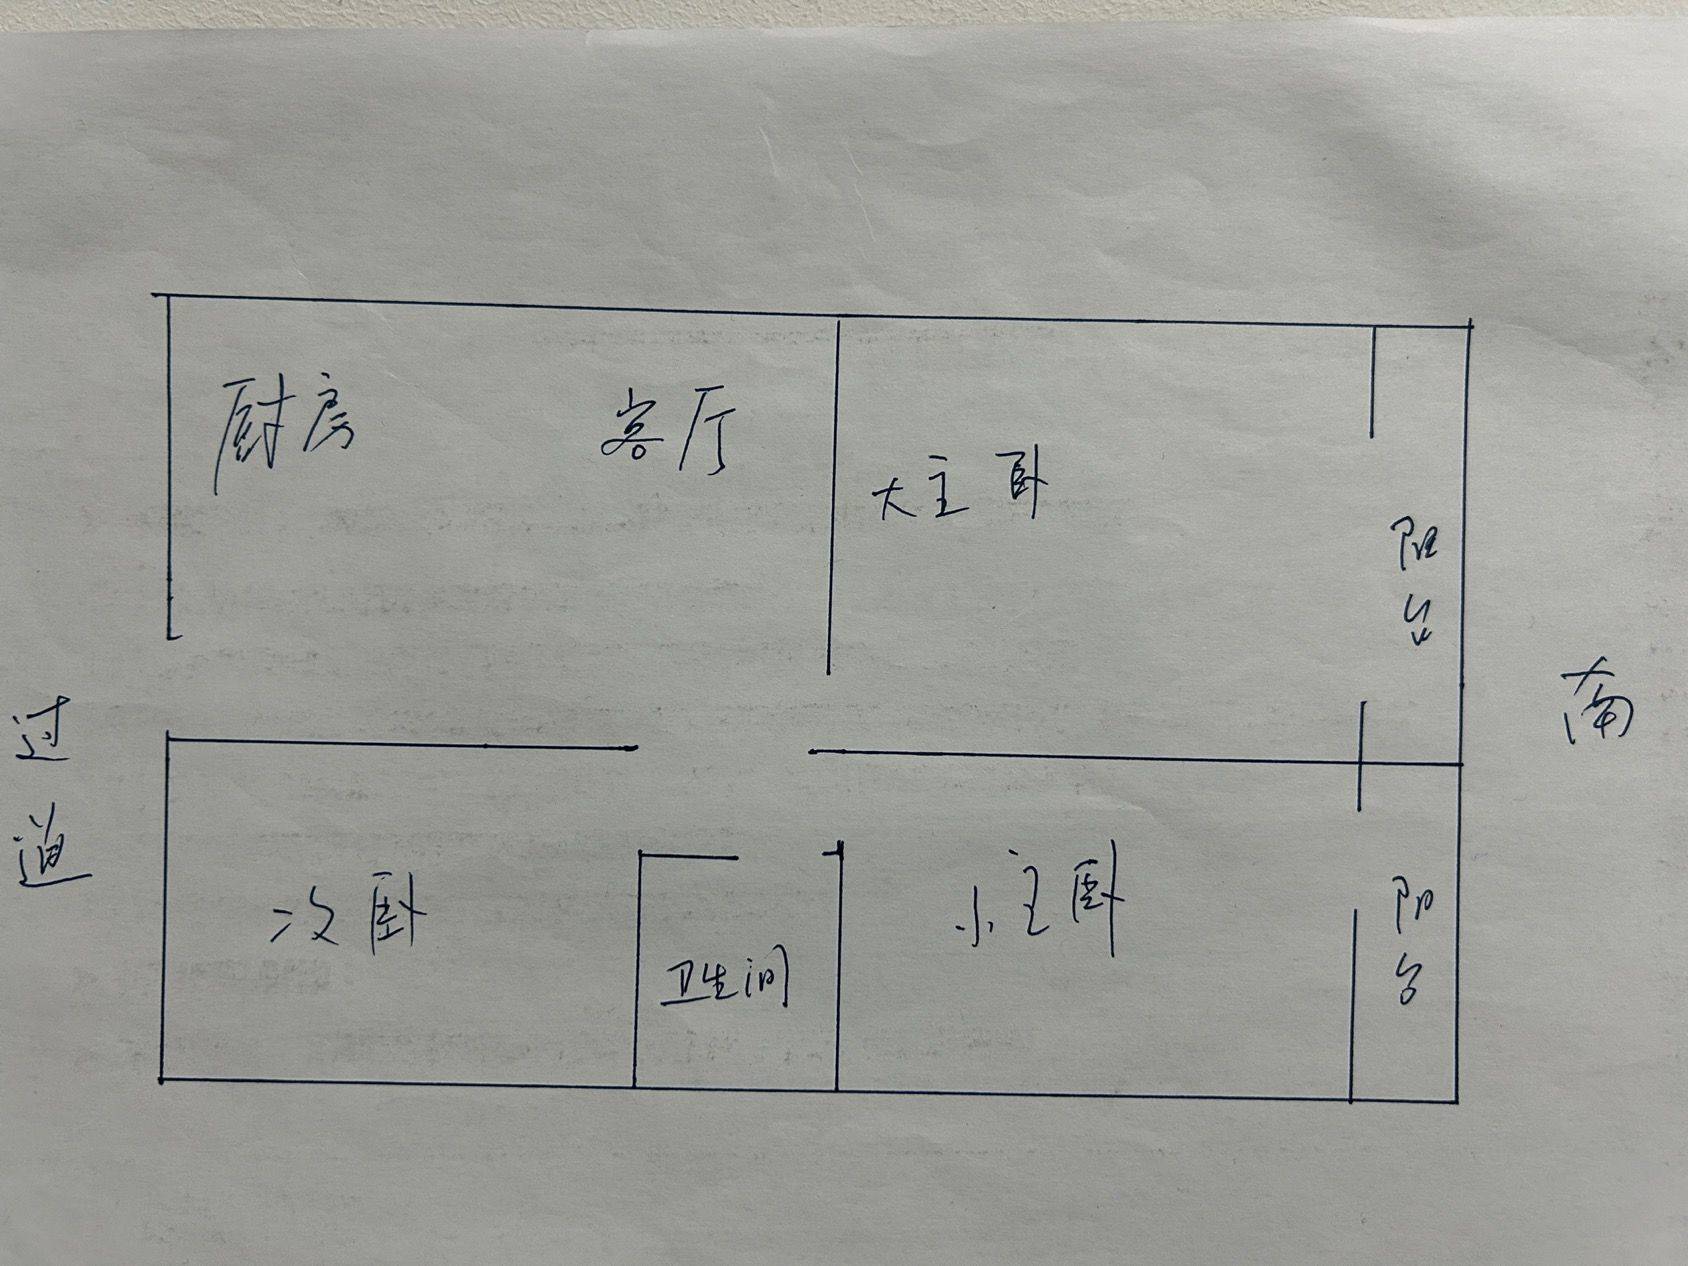 厨房
客厅
大主卧
阳台
南
过道
次卧
卫生间
小主卧
阳台